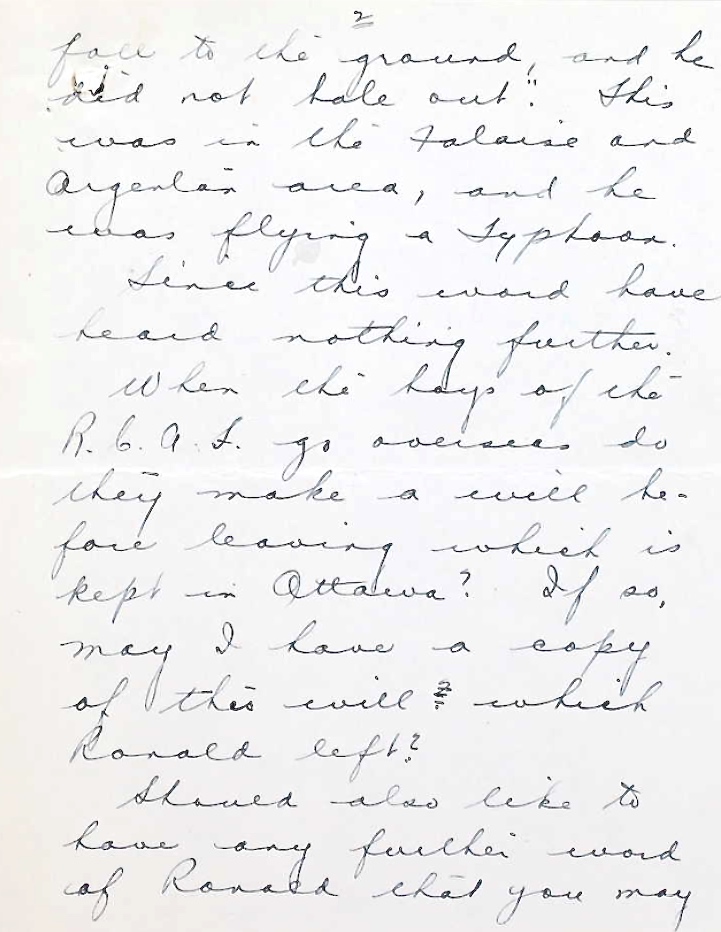 2
fall to the ground, and he
did not bale out". This
was in the Falaise and
Argentan area, and he
was flying a Typhoon.
Since this word have
heard nothing further.
When the boys of the
R.C.A.F. go overseas do
they make a will be-
fore leaving which is
kept in Ottawa? If so,
may I have a copy
of this will which
Ronald left?
Should also like to
have any further word
of Ronald that you may